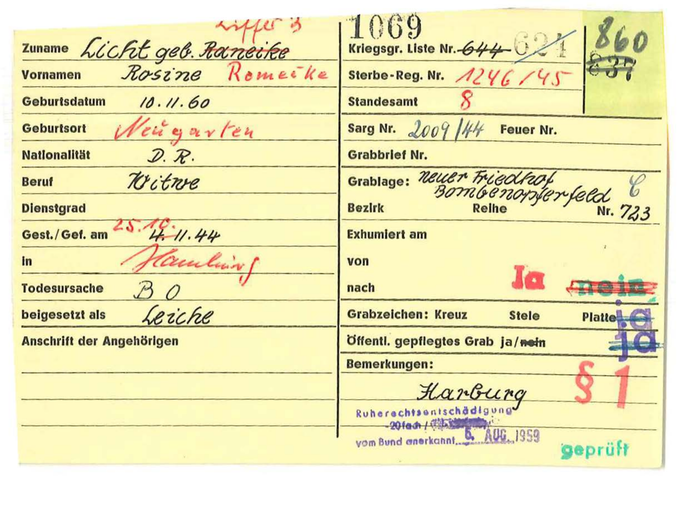 Ziffer 3
Zuname Licht geb. Raneike
Vornamen Rosine Romeike
Geburtsdatum 10.11.60
Geburtsort Neugarten
Nationalität D.R.
Beruf Witwe
Dienstgrad
25.10.
Gest./Gef. am 4.11.44
in Hamburg
Todesursache B O
beigesetzt als Leiche
Anschrift der Angehörigen
1069
Kriegsgr. Liste Nr. 644 624
860
837
Sterbe-Reg. Nr. 1246/45
Standesamt 8
Sarg Nr. 2009/44 Feuer Nr.
Grabbrief Nr.
Grablage: Neuer Friedhof
Bombenopferfeld C
Bezirk Reihe Nr. 723
Exhumiert am
von
nach Ja nein
Grabzeichen: Kreuz Stele Platte ja
Öffentl. gepflegtes Grab ja/nein ja
Bemerkungen: § 1
Harburg
Ruherechtsentschädigung
-20fach/
vom Bund anerkannt 6. AUG. 1959
geprüft